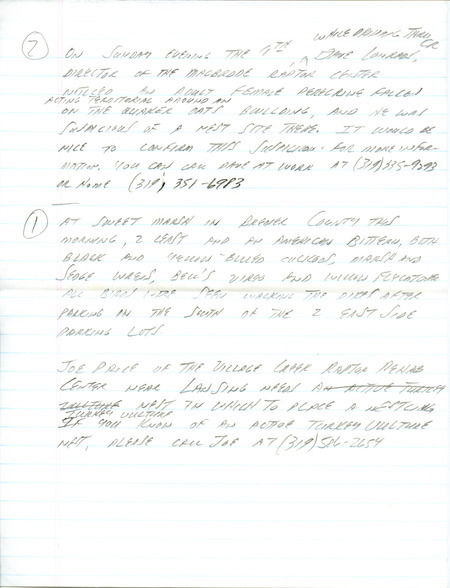 WHILE DRIVING THRU CR
② ON SUNDAY EVENING THE 9TH ^ DAVE CONRADS,
DIRECTOR OF THE MACBRIDE RAPTOR CENTER
NOTICED AN ADULT FEMALE PEREGRINE FALCON
ACTING TERRITORIAL AROUND AN
ON THE QUAKER OATS BUILDING, AND HE WAS
SUSPICIOUS OF A NEST SITE THERE. IT WOULD BE
NICE TO CONFIRM THIS SUSPICION. FOR MORE INFOR-
MATION, YOU CAN CALL DAVE AT WORK AT (319)
OR HOME (319) 351-6983
① AT SWEET MARSH IN BREMER COUNTY THIS
MORNING, 2 LEAST AND AN AMERICAN BITTERN, BOTH
BLACK AND YELLOW BILLED CUCKOOS, MARSH AND
SEDGE WRENS, BELL'S VIREO AND WILLOW FLYCATCHER
ALL BIRDS WERE SEEN WALKING THE DIKES AFTER
PARKING IN THE SOUTH OF THE 2 EAST SIDE
PARKING LOTS
JOE PRICE OF THE VILLAGE CREEK RAPTOR REHAB
CENTER NEAR LANSING NEEDS AN ACTIVE TURKEY
VULTURE NEST IN WHICH TO PLACE A NESTLING
TURKEY VULTURE
IF YOU KNOW OF AN ACTIVE TURKEY VULTURE
NEST, PLEASE CALL JOE AT (319) 586-2654